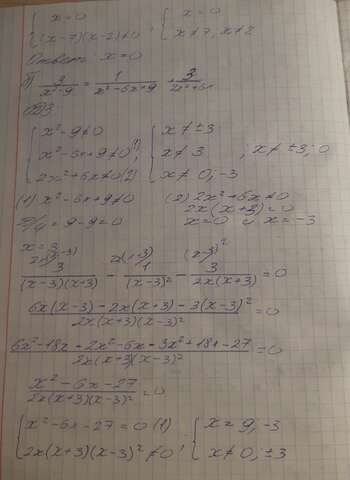 { x=0
(x-7)(x-2)≠0 ; { x=0
x≠7, x≠2
Ответ: x=0
3/(x²-9) = 1/(x²-6x+9) + 3/(2x²+6x)
ОДЗ:
{ x²-9≠0
x²-6x+9≠0 (1)
2x²+6x≠0 (2) ; { x≠±3
x≠3
x≠0,-3 ; x≠±3;0
(1) x²-6x+9≠0 (2) 2x²+6x≠0
D/4=9-9=0 2x(x+3)=0
x=0 и x=-3
x=3
2x(x-3) 2x(x+3) (x-3)²
3/((x-3)(x+3)) - 1/(x-3)² - 3/(2x(x+3)) =0
(6x(x-3)-2x(x+3)-3(x-3)²)/(2x(x+3)(x-3)²) =0
(6x²-18x-2x²-6x-3x²+18x-27)/(2x(x+3)(x-3)²) =0
(x²-6x-27)/(2x(x+3)(x-3)²) =0
{ x²-6x-27=0 (1)
2x(x+3)(x-3)²≠0 ; { x=9,-3
x≠0;±3